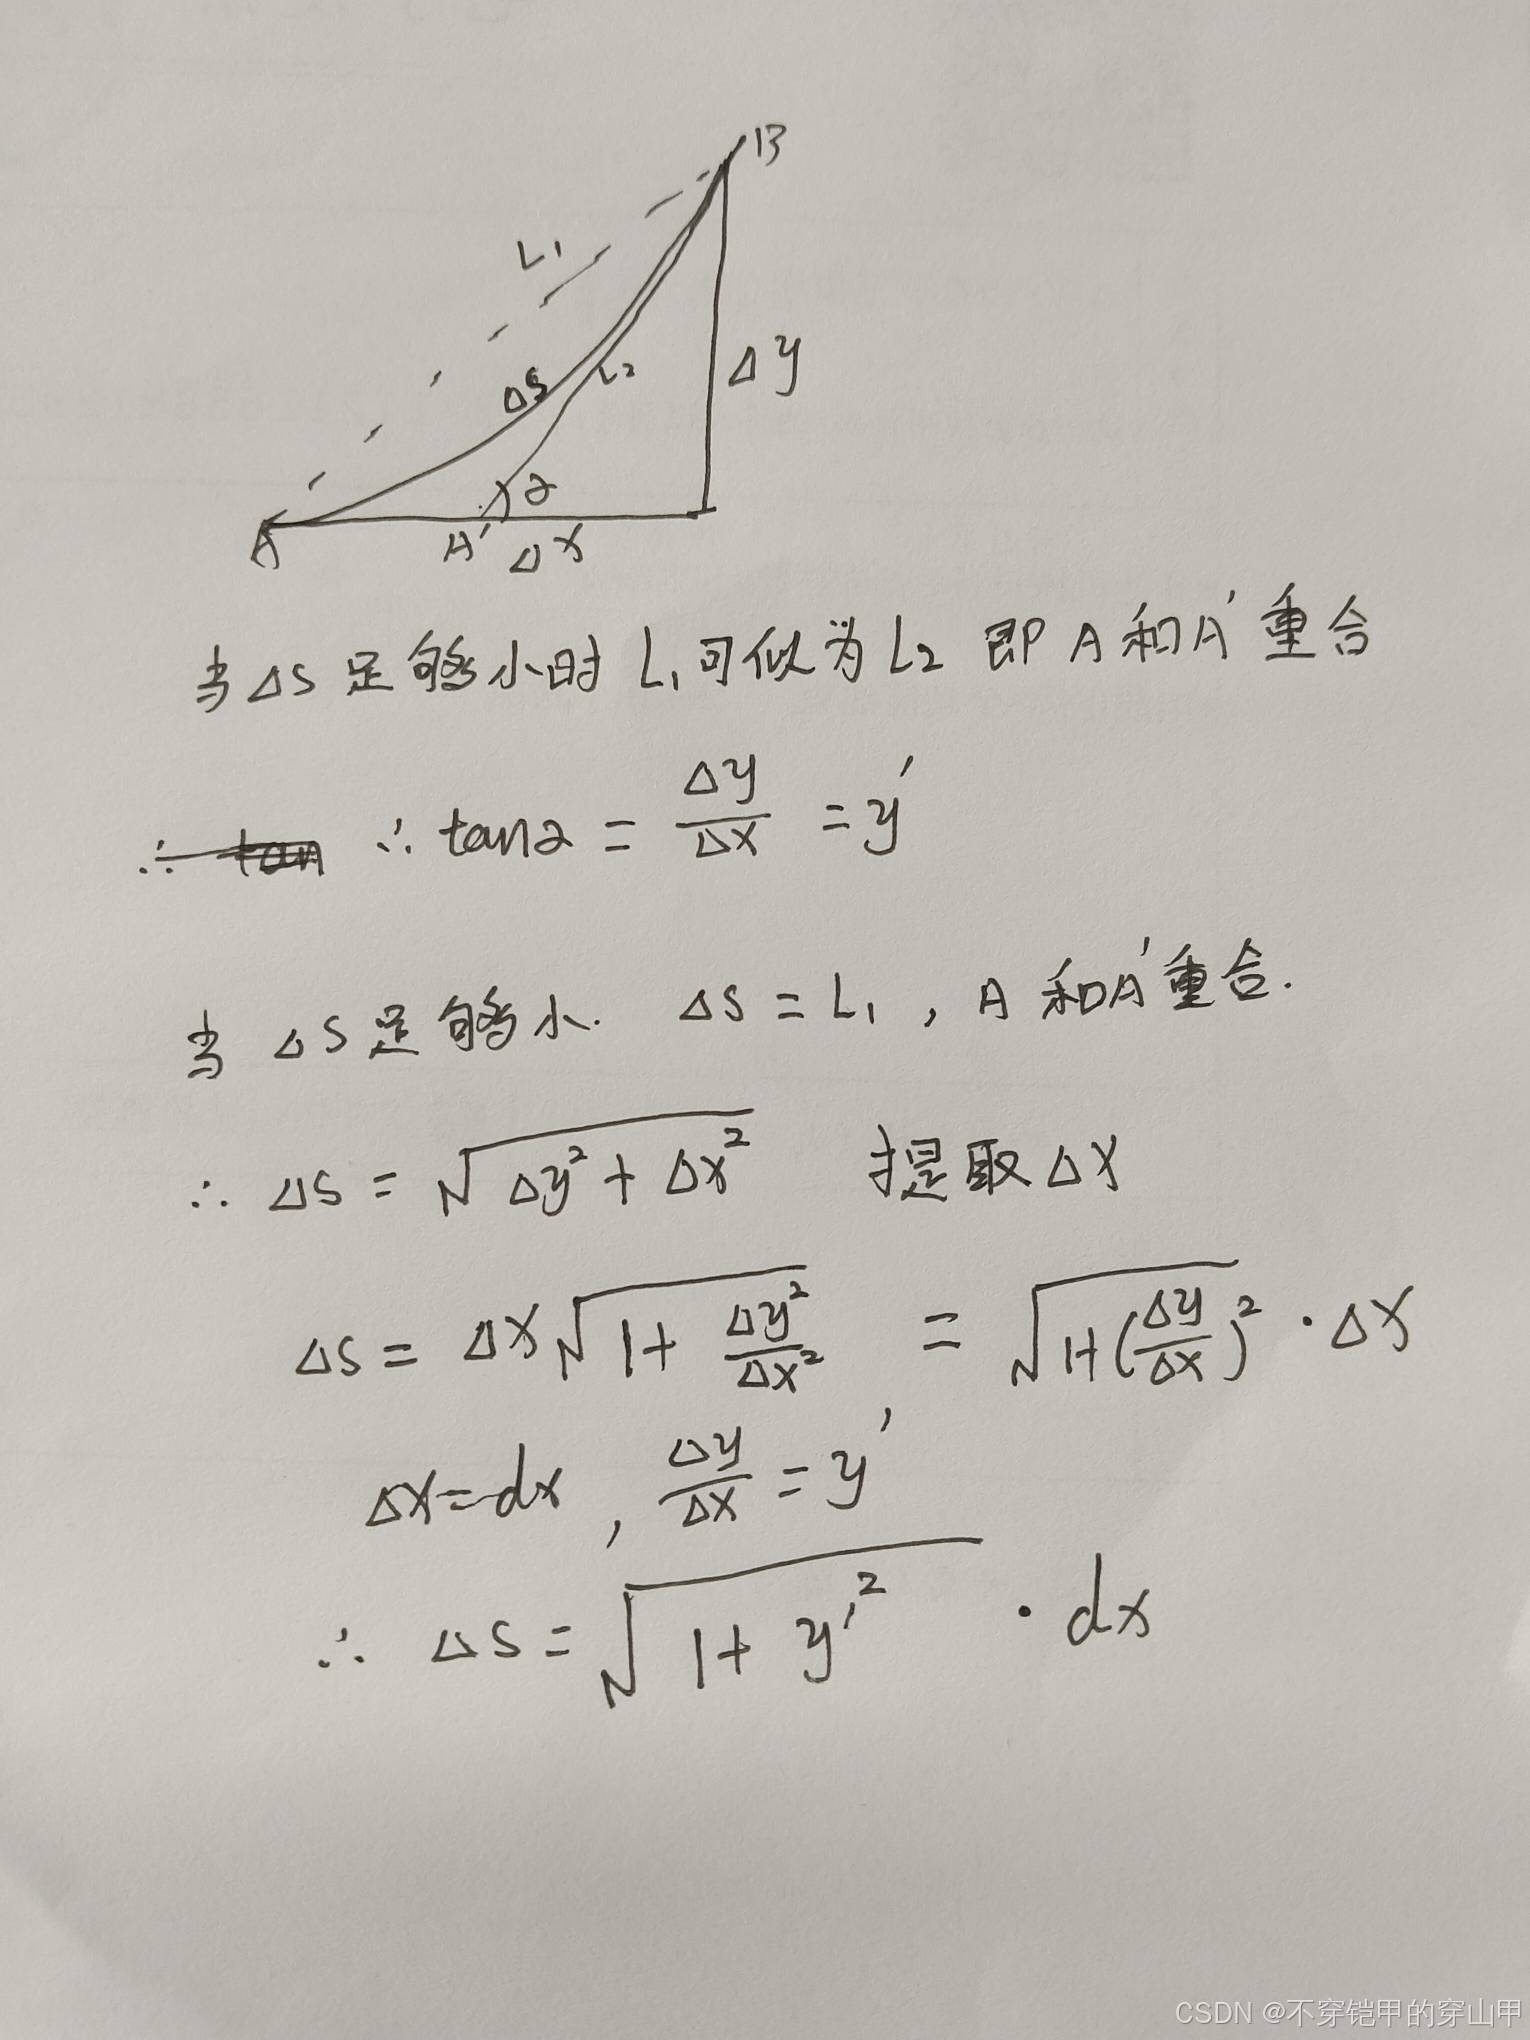 B
L₁
ΔS
L₂
Δy
2
A
A′
Δx
当ΔS足够小时 L₁可似为L₂ 即A和A′重合
∴ tan ∴ tan2 = Δy/Δx = y′
当ΔS足够小. ΔS = L₁, A和A′重合.
∴ ΔS = √(Δy² + Δx²) 提取Δx
ΔS = Δx√(1+ Δy²/Δx²) = √(1+(Δy/Δx)²) · Δx
Δx=dx, Δy/Δx = y′
∴ ΔS = √(1+ y′²) · dx
CSDN @不穿铠甲的穿山甲